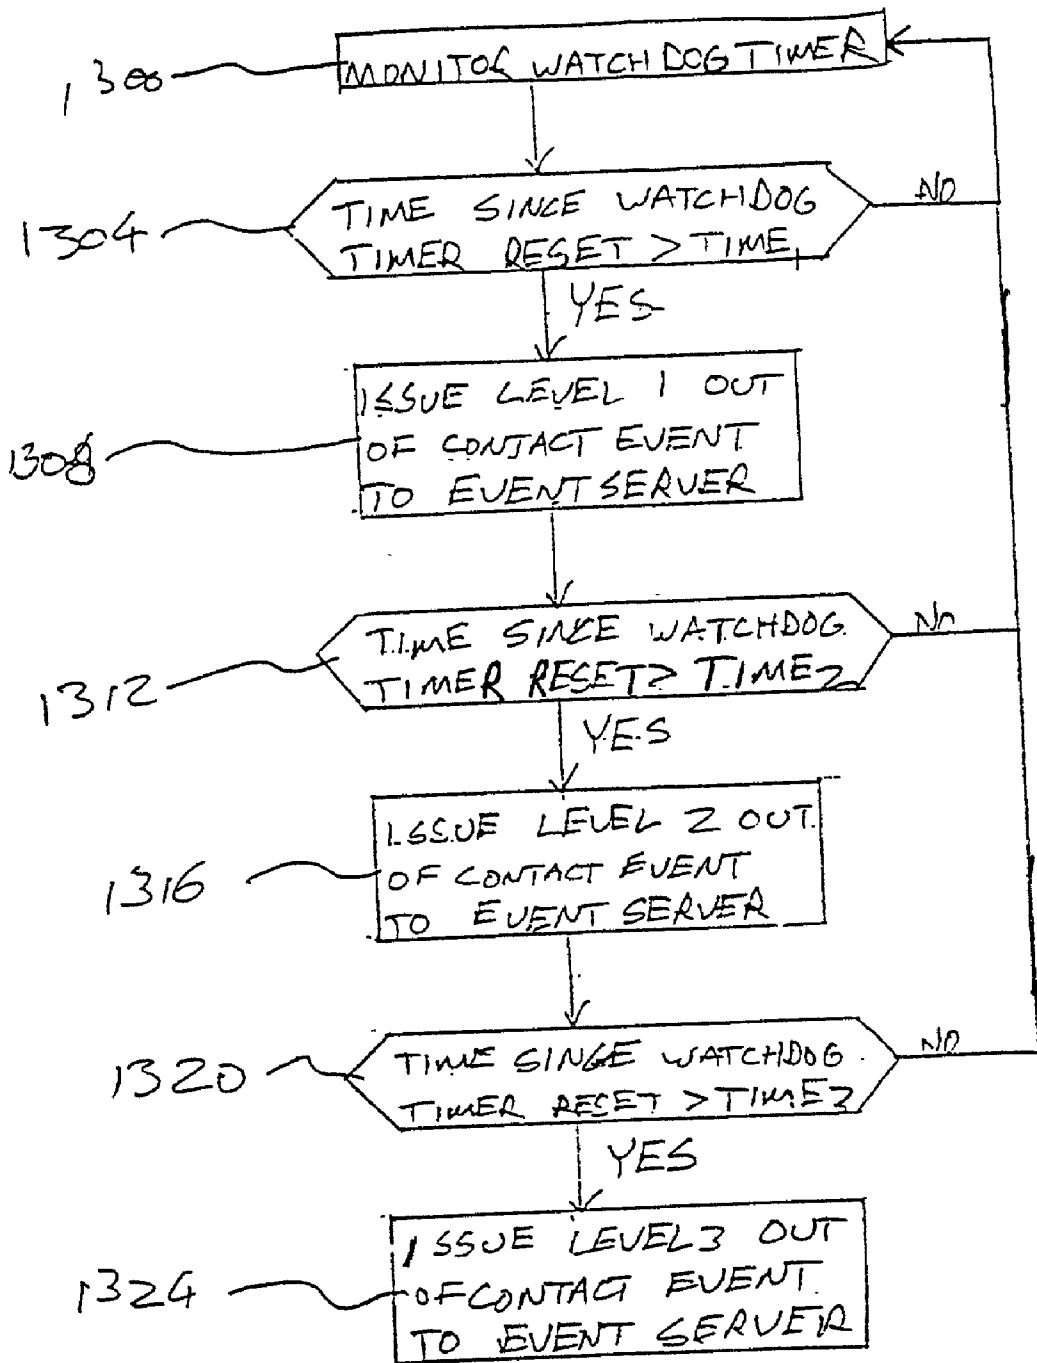 1300
MONITOR WATCHDOG TIMER
1304
TIME SINCE WATCHDOG
TIMER RESET > TIME1
NO
YES
1308
ISSUE LEVEL 1 OUT
OF CONTACT EVENT
TO EVENT SERVER
1312
TIME SINCE WATCHDOG
TIMER RESET > TIME2
NO
YES
1316
ISSUE LEVEL 2 OUT
OF CONTACT EVENT
TO EVENT SERVER
1320
TIME SINCE WATCHDOG
TIMER RESET > TIME3
NO
YES
1324
ISSUE LEVEL 3 OUT
OF CONTACT EVENT
TO EVENT SERVER